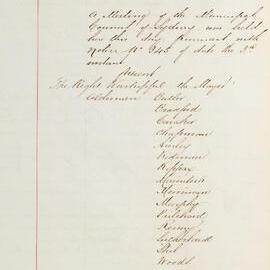 A Meeting of the Municipal
Council of Sydney was held
here this day pursuant with
Notice No 945 of date the 3rd
instant
Present
The Right Worshipful the Mayor
Aldermen Butler
Bradford
Caraher
Chapman
Hurley
Kippax
Merriman
Murphy
Pritchard
Renny
Sutherland
Woods